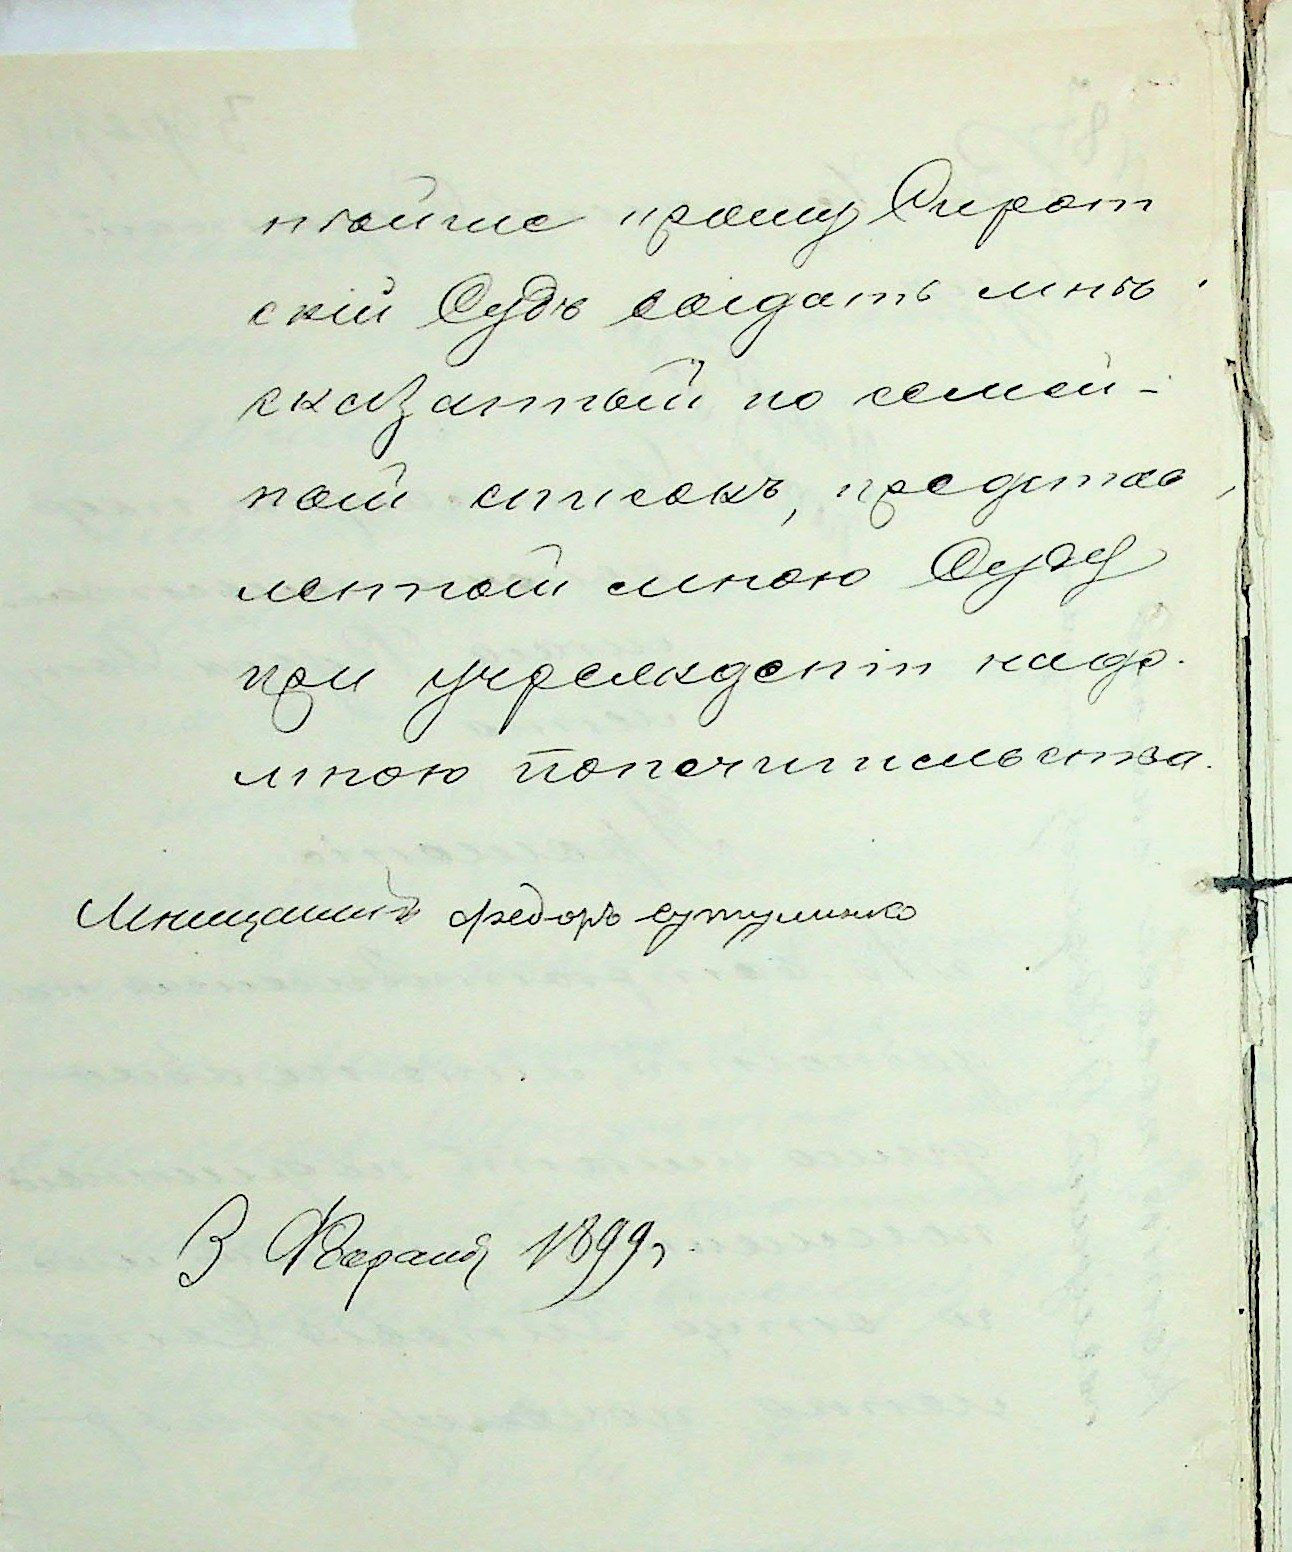 нѣйше прошу Сирот
скій Судъ создать мнѣ
сказанной по семей-
ной списокъ, представ
ленной мною Суду
при учрежденіи надо
мною попечительства.
Мѣщанинъ Федоръ Сутулинко
3 Февраля 1899 г.